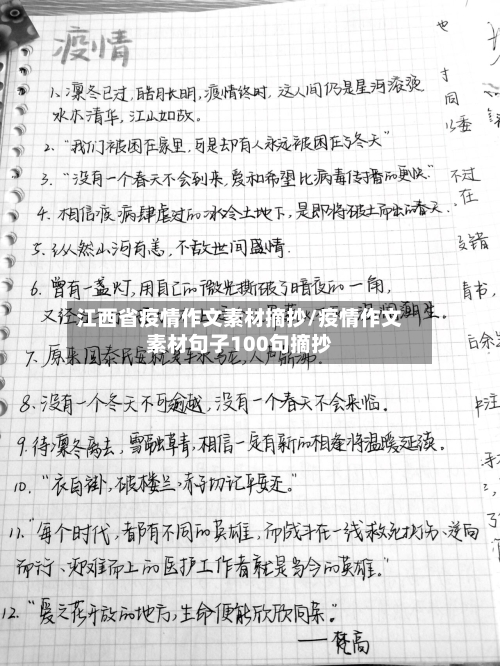 疫情
1. 凛冬已过，皓月长明，疫情终时，这人间仍是星河滚烫
水木清华，江山如故。
2. “我们被困在家里，可是却有人永远被困在了冬天”
3. “没有一个春天不会到来，爱和希望比病毒传播的更快”
4. 相信疫病肆虐过的冰冷土地下，是即将破土而出的春天。
5. 纵然山河有恙，不敌世间盛情.
6. 曾有一盏灯，用自己的微光撕破了暗夜的一角，
又经
江西省疫情作文素材摘抄/疫情作文
素材句子100句摘抄
7. 原来国泰民安
8. 没有一个冬天不可逾越，没有一个春天不会来临.
9. 待凛冬离去，雪融草青，相信一定有新的相逢将温暖延续.
10. “衣白褂，破楼兰，赤子切记平安还。”
11. “每个时代，都有不同的英雄，而战斗在一线救死扶伤、逆向
而行、迎难而上的医护工作者就是当今的英雄。”
12. “爱之花开放的地方，生命便能欣欣向荣。”
——梵高
也
才
同
以委
不过
在
青书，